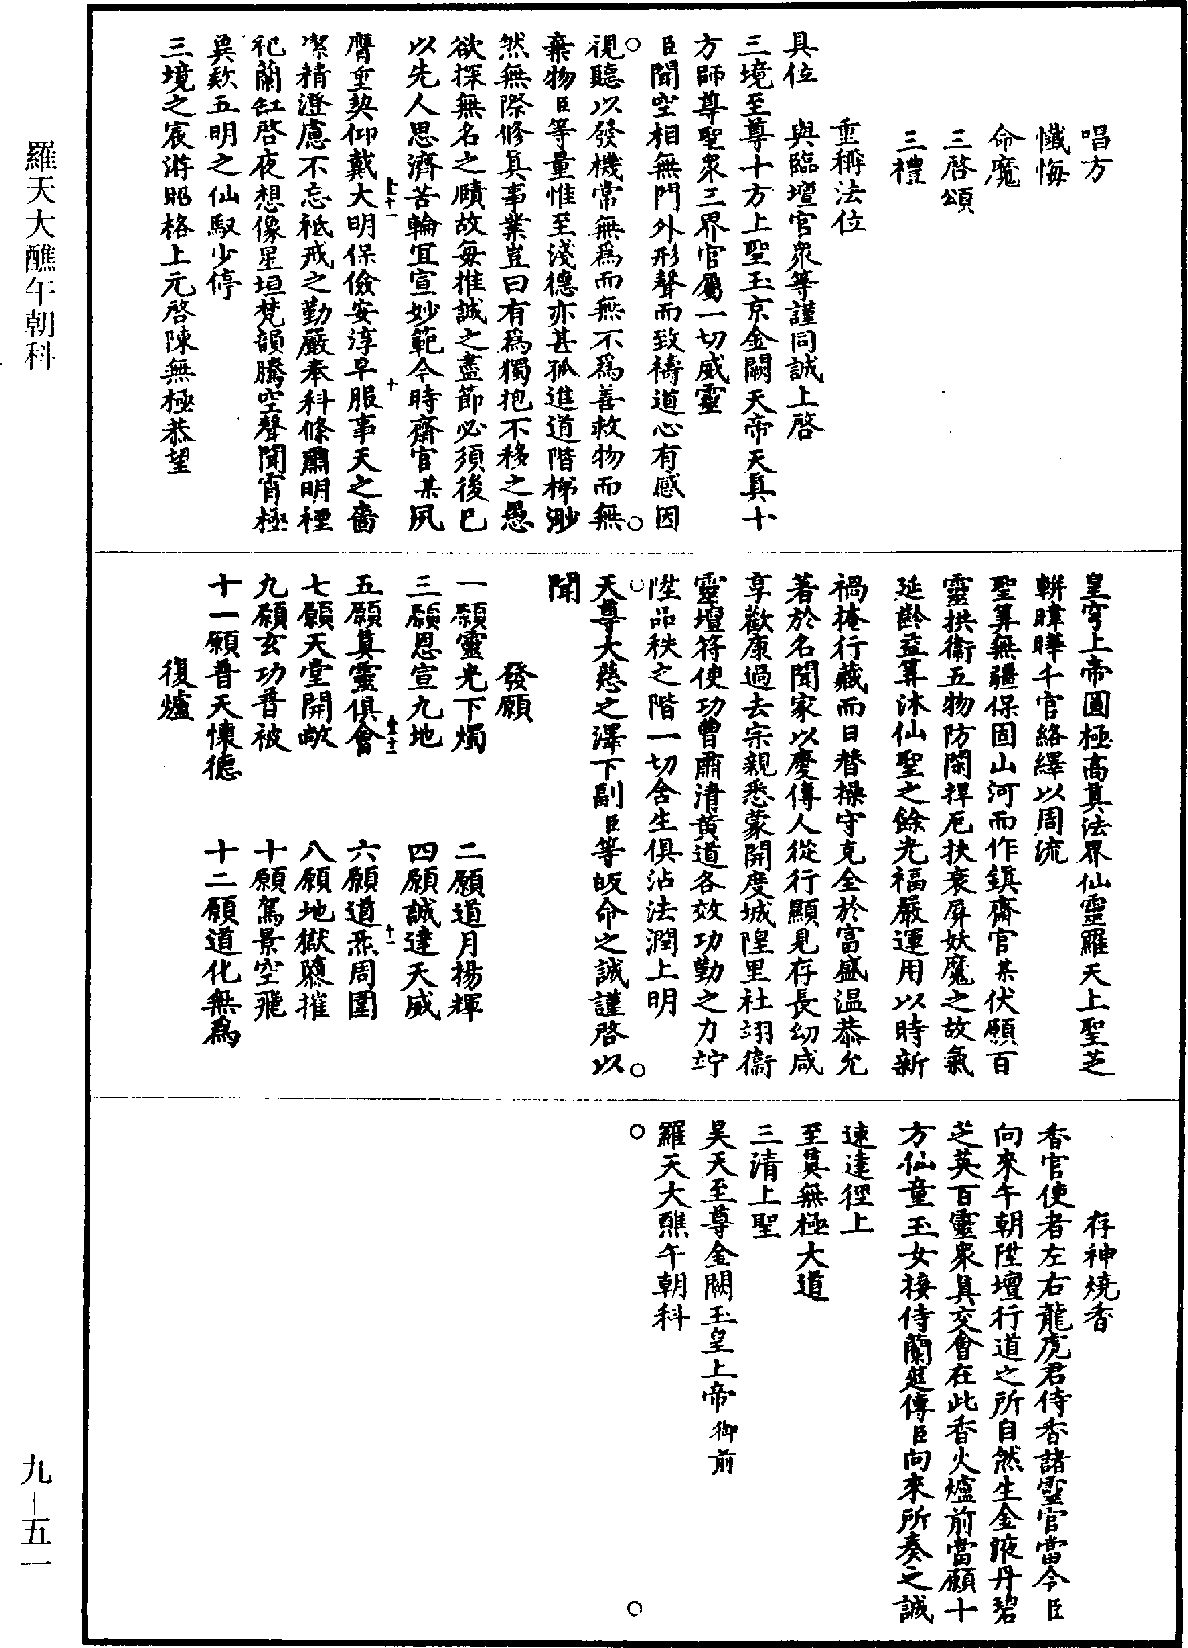 羅天大醮午朝科
九-五一
唱方
懺悔
命魔
三啓頌
三禮
重稱法位
具位　與臨壇官衆等謹同誠上啓
三境至尊十方上聖玉京金闕天帝天真十
方師尊聖衆三界官屬一切威靈
臣聞空相無門外形聲而致禱道心有感因
視聽以發機常無爲而無不爲善救物而無
棄物臣等量惟至淺德亦甚孤進道階梯渺
然無際修真事業豈曰有爲獨抱不移之愚
欲探無名之賾故每推誠之盡節必須後已
以先人思濟苦輪宜宣妙範今時齋官某夙
膺重契仰戴大明保儉安淳早服事天之嗇
潔精澄慮不忘祗戒之勤嚴奉科條肅明禋
祀蘭缸啓夜想像星垣梵韻騰空聲聞霄極
昊欻五明之仙馭少停
三境之宸游昭格上元啓陳無極恭望
皇穹上帝圓極高真法界仙靈羅天上聖芝
軿暐曄千官絡繹以周流
聖筭無疆保固山河而作鎮齋官某伏願百
靈拱衛五物防閑捍厄扶衰屏妖魔之故氣
延齡益筭沐仙聖之餘光福嚴運用以時新
禍掩行藏而日替操守克全於富盛温恭允
著於名聞家以慶傳人從行顯見存長幼咸
享歡康過去宗親悉蒙開度城隍里社翊衞
靈壇符使功曹肅清黄道各效功勤之力竚
陞品秩之階一切含生俱沾法潤上明
天尊大慈之澤下副臣等皈命之誠謹啓以
聞
發願
一願靈光下燭　二願道月揚輝
三願恩宣九地　四願誠達天威
五願真靈俱會　六願道炁周圍
七願天堂開敞　八願地獄隳摧
九願玄功普被　十願駕景空飛
十一願普天懷德　十二願道化無爲
復爐
存神燒香
香官使者左右龍虎君侍香諸靈官當今臣
向來午朝陞壇行道之所自然生金液丹碧
芝英百靈衆真交會在此香火爐前當願十
方仙童玉女接侍蘭莚傳臣向來所奏之誠
速達徑上
至真無極大道
三清上聖
昊天至尊金闕玉皇上帝御前
羅天大醮午朝科